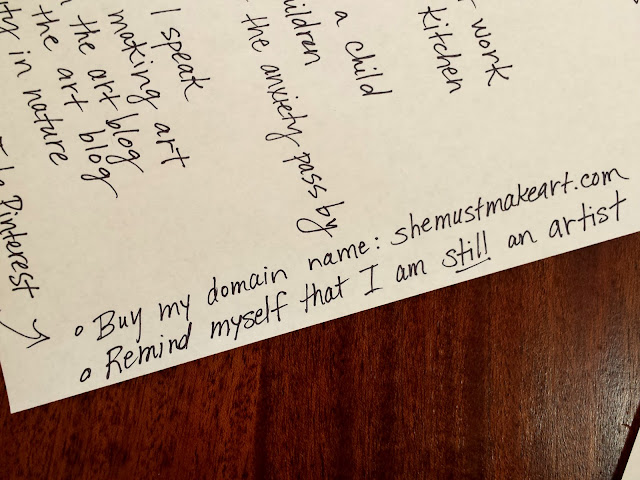 I speak
making art
the art blog
the art blog
ty in nature
work
Kitchen
a child
ildren
the anxiety pass by
Pinterest
• Buy my domain name: shemustmakeart.com
• Remind myself that I am still an artist